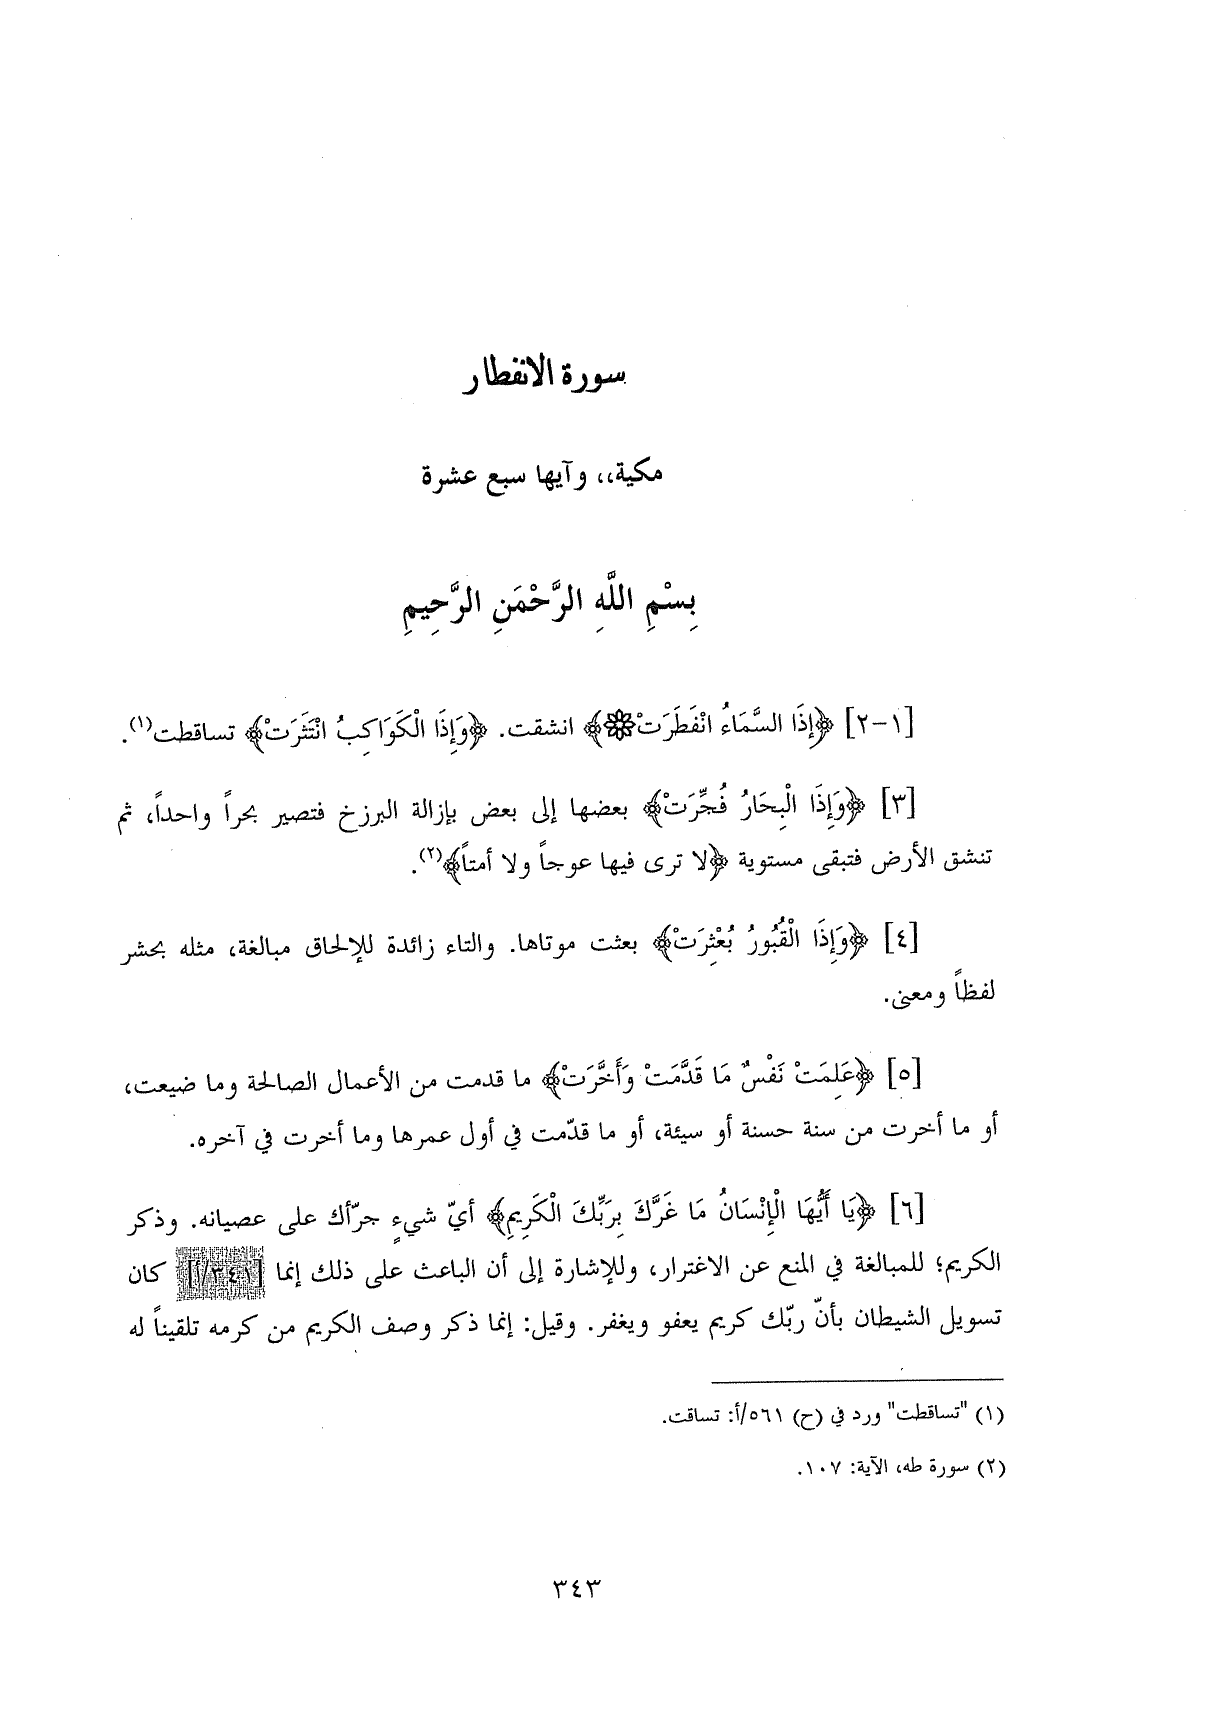 سورة الانفطار
مكية،، وآيها سبع عشرة
بِسْمِ اللَّهِ الرَّحْمَنِ الرَّحِيمِ
[١-٢] ﴿إِذَا السَّمَاءُ انْفَطَرَتْ۞﴾ انشقت. ﴿وَإِذَا الْكَوَاكِبُ انْتَثَرَتْ﴾ تساقطت(١).
[٣] ﴿وَإِذَا الْبِحَارُ فُجِّرَتْ﴾ بعضها إلى بعض بإزالة البرزخ فتصير بحراً واحداً، ثم
تنشق الأرض فتبقى مستوية ﴿لا ترى فيها عوجاً ولا أمتاً﴾(٢).
[٤] ﴿وَإِذَا الْقُبُورُ بُعْثِرَتْ﴾ بعثت موتاها. والتاء زائدة للإلحاق مبالغة، مثله بحشر
لفظاً ومعنى.
[٥] ﴿عَلِمَتْ نَفْسٌ مَا قَدَّمَتْ وَأَخَّرَتْ﴾ ما قدمت من الأعمال الصالحة وما ضيعت،
أو ما أخرت من سنة حسنة أو سيئة، أو ما قدّمت في أول عمرها وما أخرت في آخره.
[٦] ﴿يَا أَيُّهَا الْإِنْسَانُ مَا غَرَّكَ بِرَبِّكَ الْكَرِيمِ﴾ أيّ شيءٍ جرّأك على عصيانه. وذكر
الكريم؛ للمبالغة في المنع عن الاغترار، وللإشارة إلى أن الباعث على ذلك إنما [٣٤١/أ] كان
تسويل الشيطان بأنّ ربّك كريم يعفو ويغفر. وقيل: إنما ذكر وصف الكريم من كرمه تلقيناً له
(١) "تساقطت" ورد في (ح) ٥٦١/أ: تساقت.
(٢) سورة طه، الآية: ١٠٧.
٣٤٣